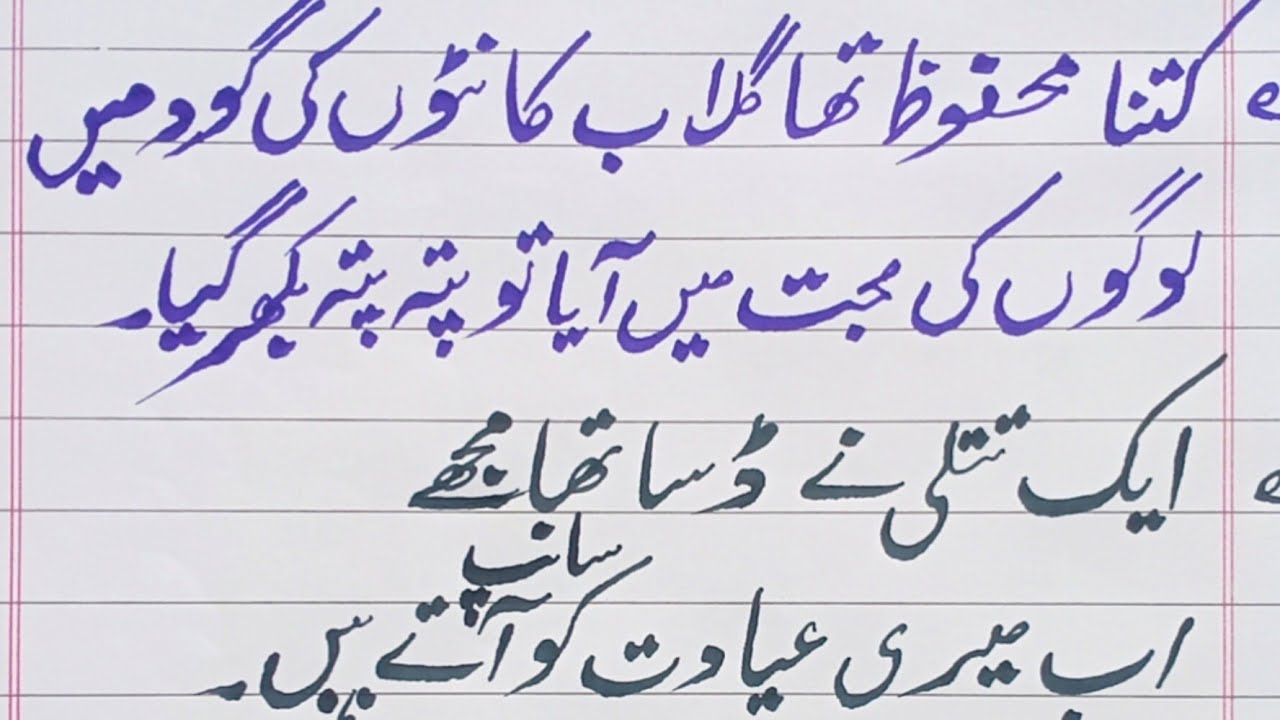 کتنا محفوظ تھا گلاب کانٹوں کی گود میں
لوگوں کی محبت میں آیا تو پتہ پتہ بکھر گیا۔
ایک تتلی نے ڈسا تھا مجھے
سانپ
اب میری عیادت کو آتے ہیں۔